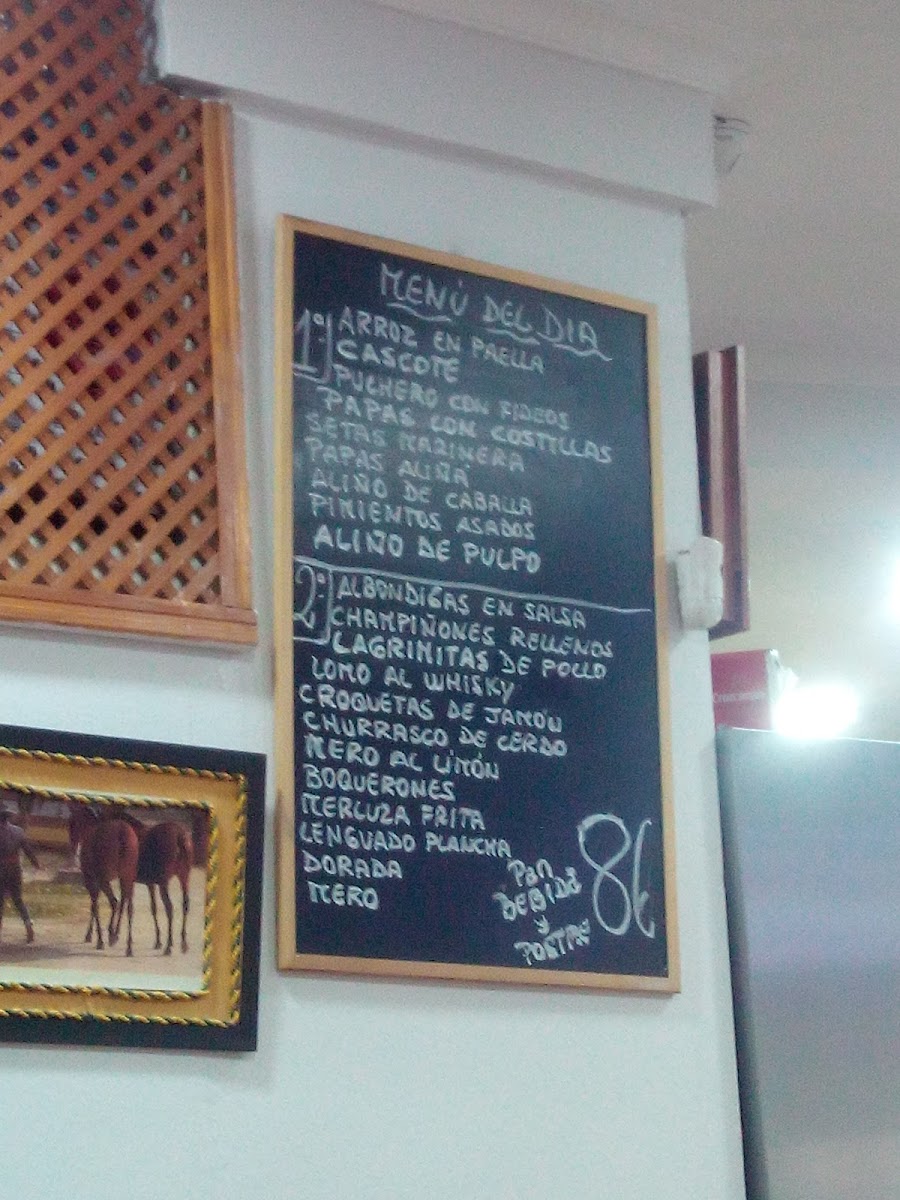 MENÚ DEL DIA
1º) ARROZ EN PAELLA
CASCOTE
PUCHERO CON FIDEOS
PAPAS CON COSTILLAS
SETAS MARINERA
PAPAS ALIÑÁ
ALIÑO DE CABALLA
PIMIENTOS ASADOS
ALIÑO DE PULPO
2º) ALBONDIGAS EN SALSA
CHAMPIÑONES RELLENOS
LAGRIMITAS DE POLLO
LOMO AL WHISKY
CROQUETAS DE JAMÓN
CHURRASCO DE CERDO
MERO AL LIMÓN
BOQUERONES
MERLUZA FRITA
LENGUADO PLANCHA
DORADA
MERO
PAN
BEBIDA
y
POSTRE
8€